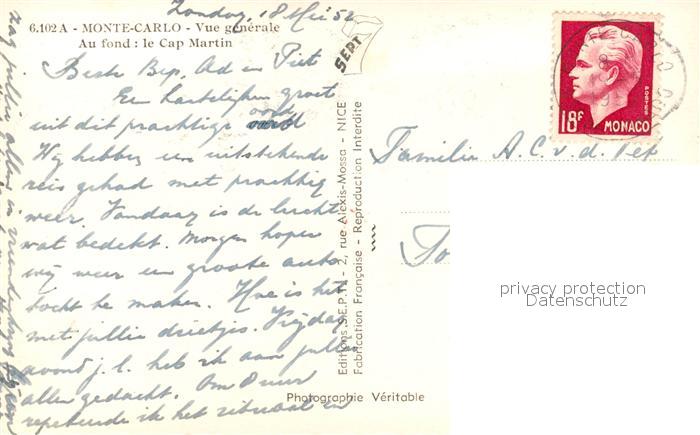 Zondag, 18 Mei 52
6.102 A - MONTE-CARLO - Vue générale
Au fond : le Cap Martin
Beste Bep, Ad en Piet
Een hartelijken groet
uit dit prachtige oord
Wij hebben een uitstekende
reis gehad met prachtig
weer. Vandaag is de lucht
wat bedekt. Morgen hopen
wij weer een groote auto
tocht te maken. Hoe is het
met jullie drietjes. Vrijdag
avond j.l. heb ik aan jullie
allen gedacht. Om 8 uur
repeteerde ik het rituaal en
zag jullie allen in
SEPT
Editions S.E.P.T. - 2, rue Alexis-Mossa - NICE
Fabrication Française - Reproduction Interdite
Photographie Véritable
18F
POSTES
MONACO
Familie A. C. v. d. Pex
privacy protection
Datenschutz